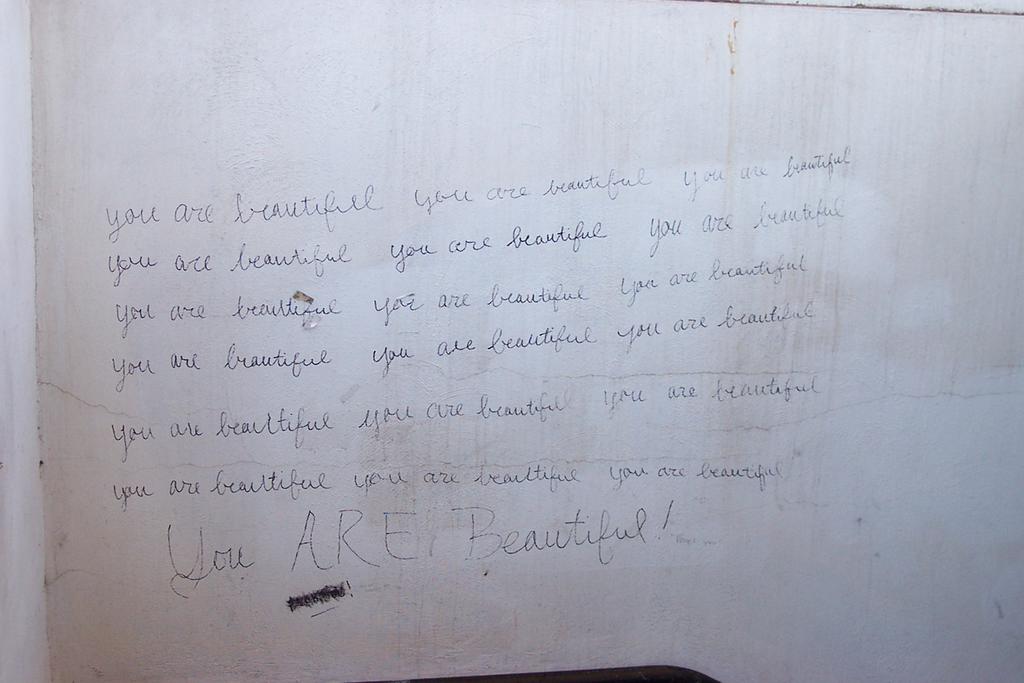 you are beautiful you are beautiful you are beautiful
you are beautiful you are beautiful you are beautiful
you are beautiful you are beautiful you are beautiful
you are beautiful you are beautiful you are beautiful
you are beautiful you are beautiful you are beautiful
you are beautiful you are beautiful you are beautiful
You ARE Beautiful!